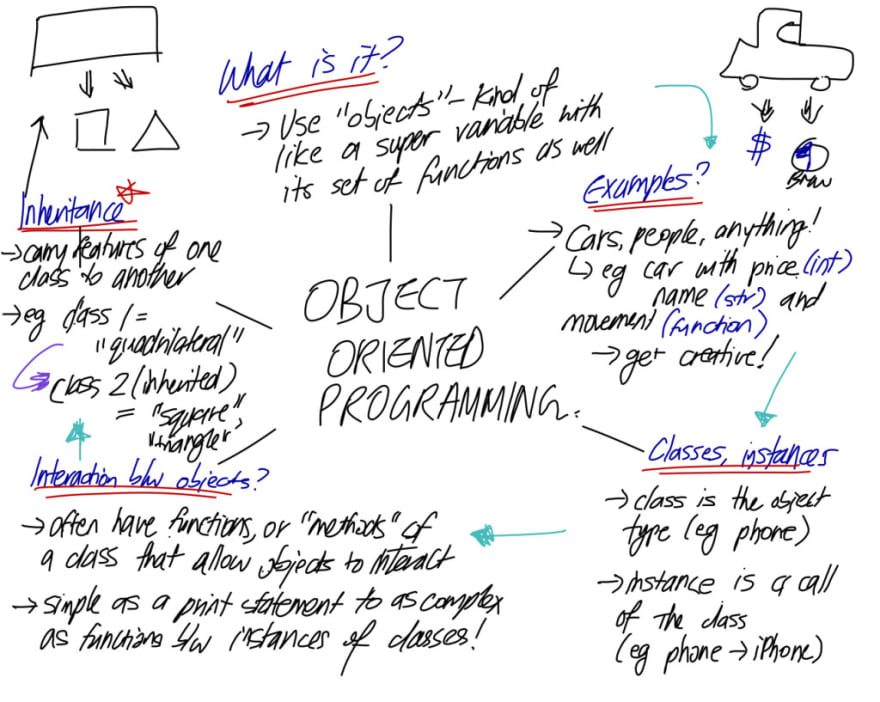 What is it?
→ Use "objects" - kind of
like a super variable with
its set of functions as well
Examples?
→ Cars, people, anything!
↳ eg car with price (int)
name (str) and
movement (function)
→ get creative!
$
Classes, instances
→ class is the object
type (eg phone)
→ instance is a call
of the class
(eg phone → iPhone)
Interaction b/w objects?
→ often have functions, or "methods" of
a class that allow objects to interact
→ simple as a print statement to as complex
as functions b/w instances of classes!
Inheritance *
→ carry features of one
class to another
→ eg class 1 =
"quadrilateral"
class 2 (inherited)
= "square"
OBJECT
ORIENTED
PROGRAMMING.